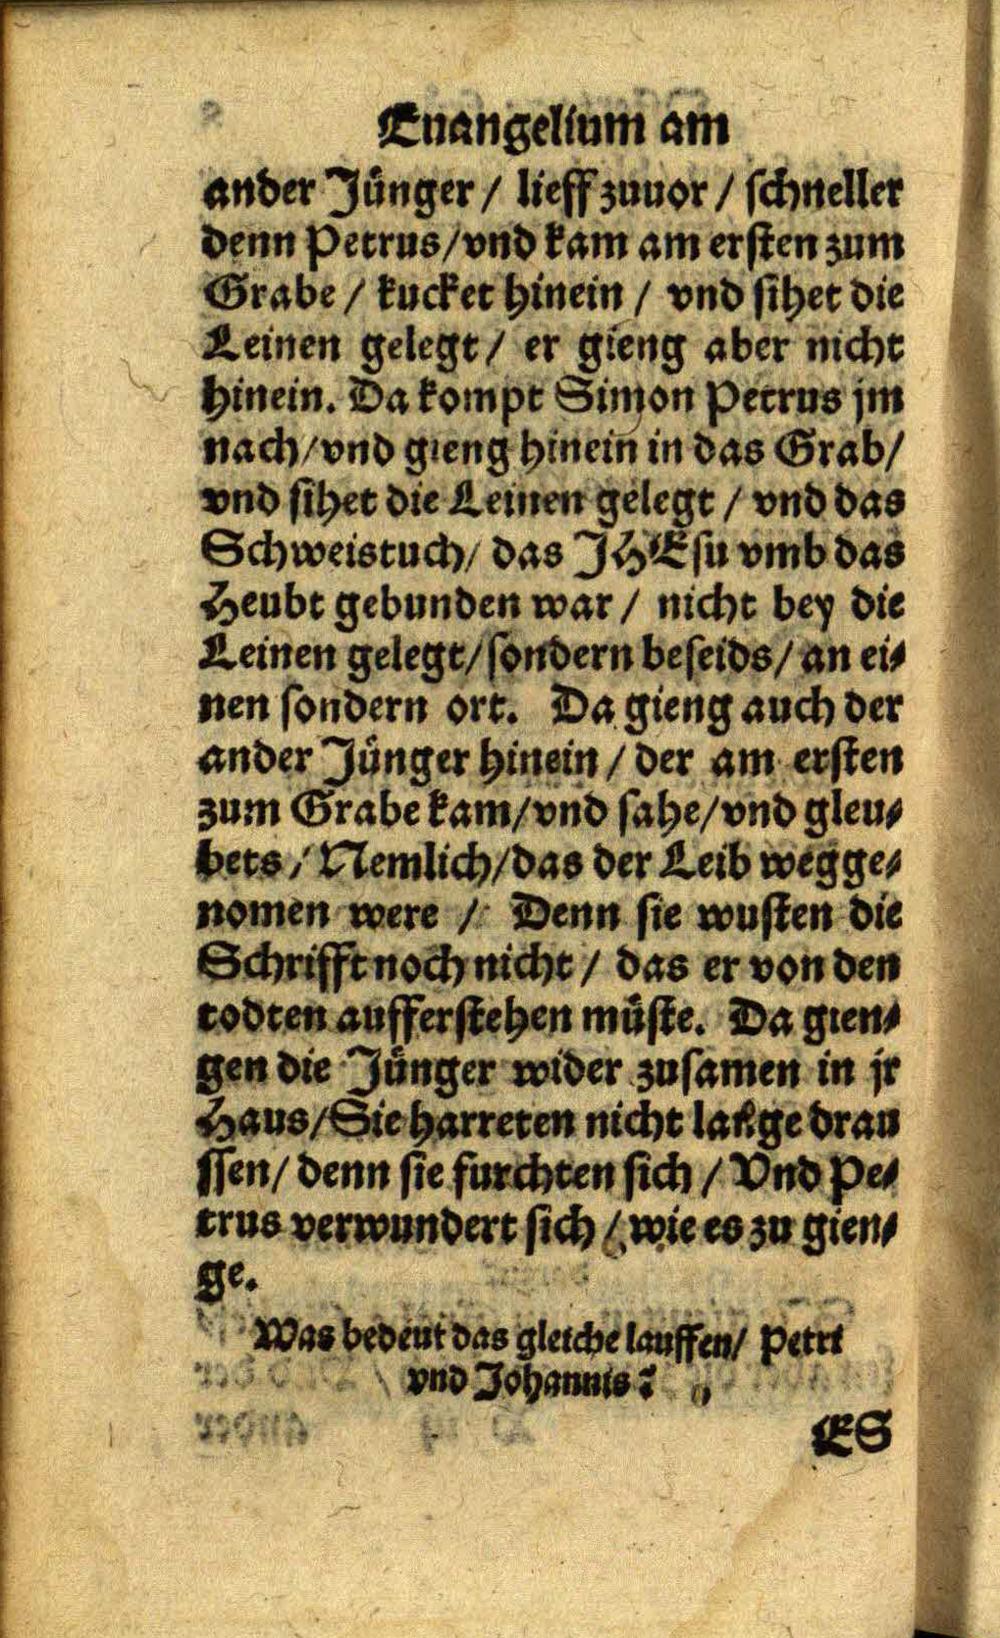 Euangelium am
ander Jünger / lieff zuuor / schneller
denn Petrus / vnd kam am ersten zum
Grabe / kucket hinein / vnd sihet die
Leinen gelegt / er gieng aber nicht
hinein. Da kompt Simon Petrus jm
nach / vnd gieng hinein in das Grab /
vnd sihet die Leinen gelegt / vnd das
Schweistuch / das JHEsu vmb das
Heubt gebunden war / nicht bey die
Leinen gelegt / sondern beseids / an ei⸗
nen sondern ort. Da gieng auch der
ander Jünger hinein / der am ersten
zum Grabe kam / vnd sahe / vnd gleu⸗
bets / Nemlich / das der Leib wegge⸗
nomen were / Denn sie wusten die
Schrifft noch nicht / das er von den
todten aufferstehen müste. Da gien⸗
gen die Jünger wider zusamen in jr
Haus / Sie harreten nicht lange drau
ssen / denn sie furchten sich / Vnd Pe⸗
trus verwundert sich / wie es zu gien⸗
ge.
Was bedeut das gleiche lauffen / Petri
vnd Johannis?
ES